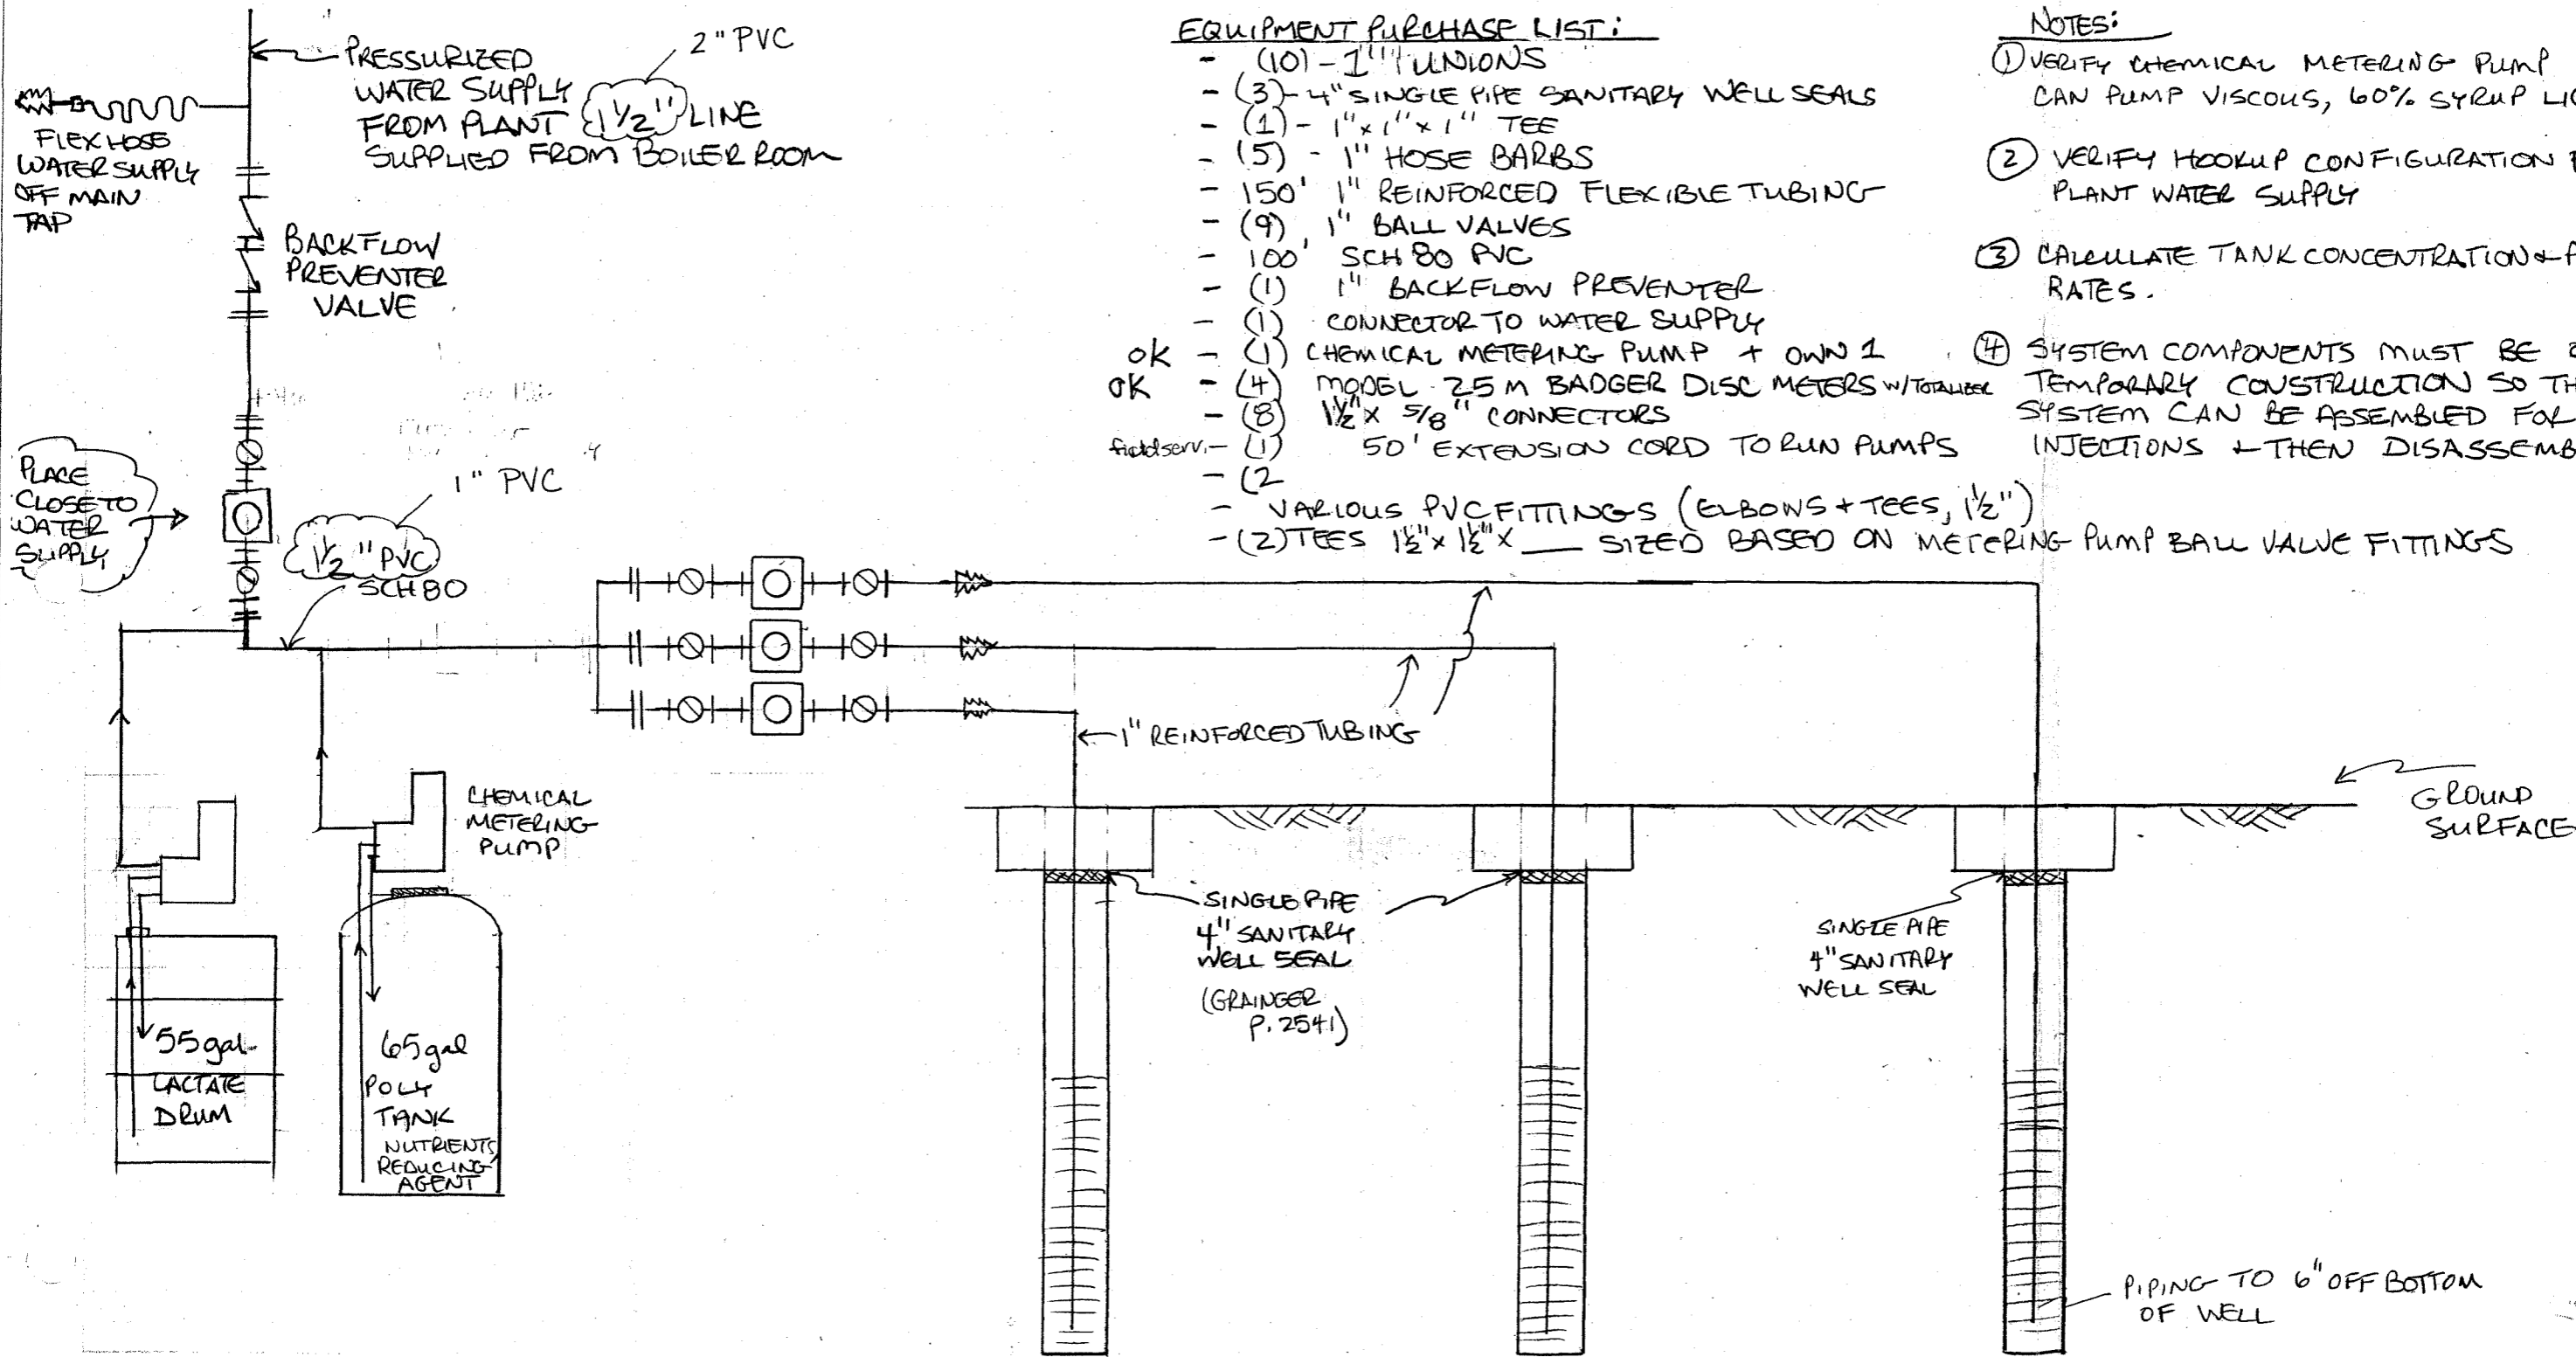 PRESSURIZED
WATER SUPPLY
FROM PLANT 1½" LINE
SUPPLIED FROM BOILER ROOM
2" PVC
FLEX HOSE
WATER SUPPLY
OFF MAIN
TAP
BACKFLOW
PREVENTER
VALVE
PLACE
CLOSE TO
WATER
SUPPLY
1" PVC
1½" PVC
SCH 80
EQUIPMENT PURCHASE LIST:
- (10) - 1" UNIONS
- (3) - 4" SINGLE PIPE SANITARY WELL SEALS
- (1) - 1" x 1" x 1" TEE
- (5) - 1" HOSE BARBS
- 150' 1" REINFORCED FLEXIBLE TUBING
- (9) 1" BALL VALVES
- 100' SCH 80 PVC
- (1) 1" BACKFLOW PREVENTER
- (1) CONNECTOR TO WATER SUPPLY
OK - (1) CHEMICAL METERING PUMP + OWN 1
OK - (4) MODEL 25M BADGER DISC METERS W/TOTALIZER
- (8) 1½" x 5/8" CONNECTORS
field serv. - (1) 50' EXTENSION CORD TO RUN PUMPS
- (2
- VARIOUS PVC FITTINGS (ELBOWS + TEES, 1½")
- (2) TEES 1½" x 1½" x ___ SIZED BASED ON METERING PUMP BALL VALVE FITTINGS
NOTES:
① VERIFY CHEMICAL METERING PUMP
CAN PUMP VISCOUS, 60% SYRUP
② VERIFY HOOKUP CONFIGURATION
PLANT WATER SUPPLY
③ CALCULATE TANK CONCENTRATION +
RATES.
④ SYSTEM COMPONENTS MUST BE
TEMPORARY CONSTRUCTION SO
SYSTEM CAN BE ASSEMBLED FOR
INJECTIONS + THEN
1" REINFORCED TUBING
GROUND
SURFACE
CHEMICAL
METERING
PUMP
SINGLE PIPE
4" SANITARY
WELL SEAL
(GRAINGER
P. 2541)
SINGLE PIPE
4" SANITARY
WELL SEAL
55 gal
LACTATE
DRUM
65 gal
POLY
TANK
NUTRIENTS
REDUCING
AGENT
PIPING TO 6" OFF BOTTOM
OF WELL